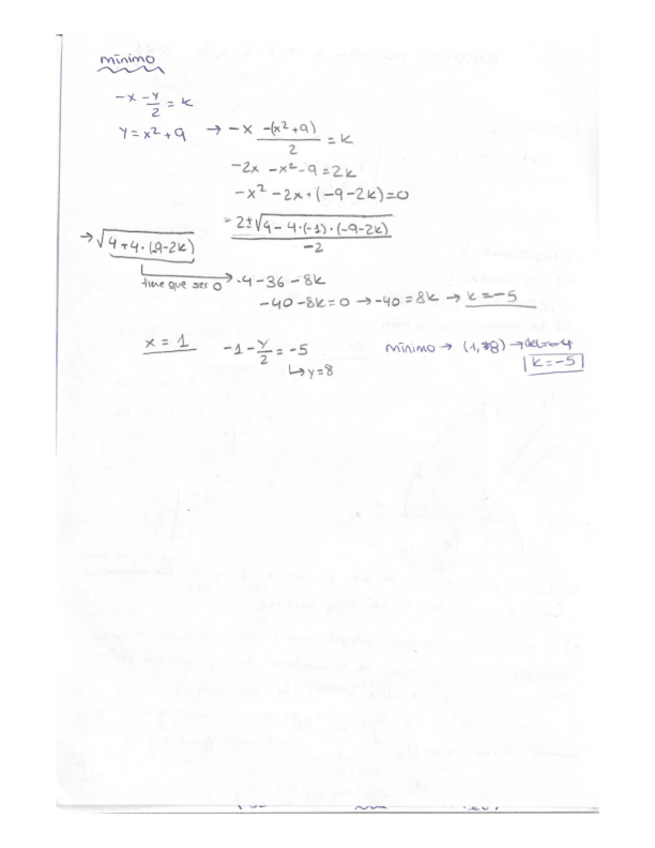 mínimo
-x - y/2 = k
y = x² + 9 → -x -(x²+9)/2 = k
-2x - x² - 9 = 2k
-x² - 2x + (-9-2k) = 0
= 2±√(4-4·(-1)·(-9-2k)) / -2
→ √(4+4·(-9-2k))
tiene que ser 0 → 4-36-8k
-40-8k=0 → -40=8k → k=-5
x = 1 -1 - y/2 = -5
↳ y=8
mínimo → (1, 8) →
k=-5